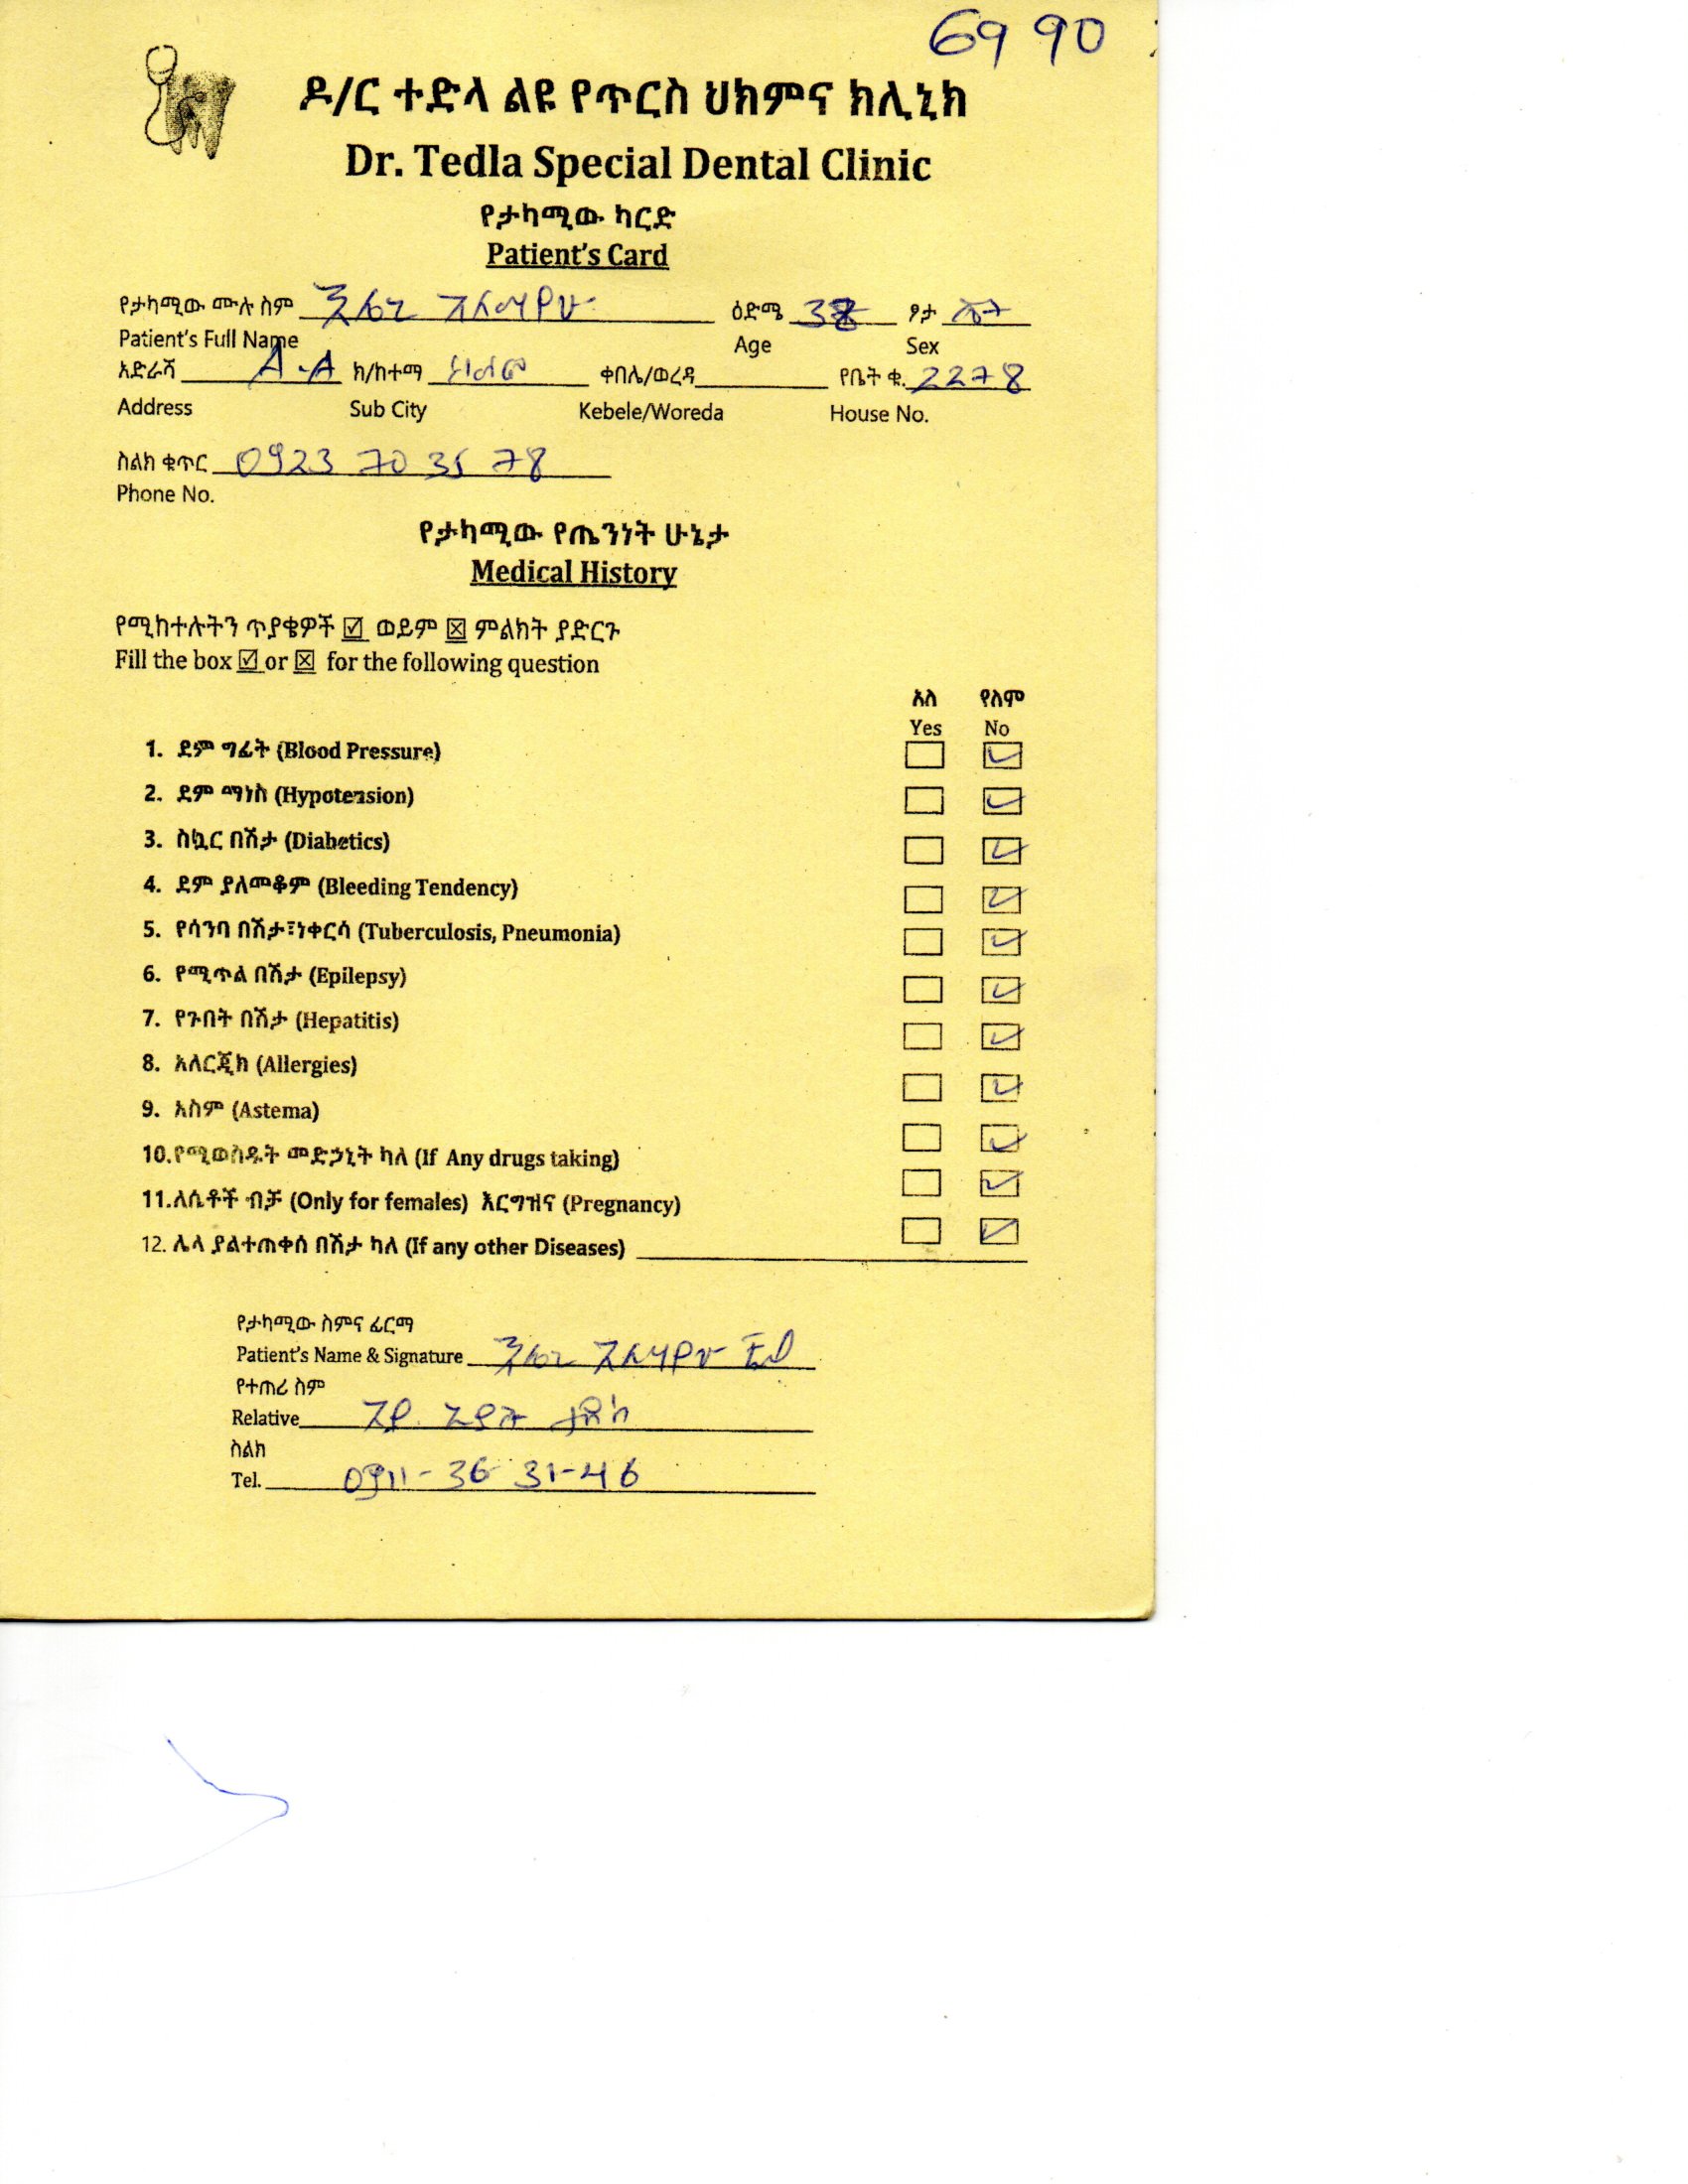 6990
ዶ/ር ተድላ ልዩ የጥርስ ህክምና ክሊኒክ
Dr. Tedla Special Dental Clinic
የታካሚው ካርድ
Patient's Card
የታካሚው ሙሉ ስም ዓለማየሁ ዕድሜ ፆታ ሴት
Patient's Full Name Age Sex
አድራሻ A.A ክ/ከተማ ቀበሌ/ወረዳ የቤት ቁ. 2278
Address Sub City Kebele/Woreda House No.
ስልክ ቁጥር 0923 70 35 78
Phone No.
የታካሚው የጤንነት ሁኔታ
Medical History
የሚከተሉትን ጥያቄዎች ☑ ወይም ☒ ምልክት ያድርጉ
Fill the box ☑ or ☒ for the following question
አለ የለም
Yes No
1. ደም ግፊት (Blood Pressure)
2. ደም ማነስ (Hypotension)
3. ስኳር በሽታ (Diabetics)
4. ደም ያለመቆም (Bleeding Tendency)
5. የሳንባ በሽታ፣ነቀርሳ (Tuberculosis, Pneumonia)
6. የሚጥል በሽታ (Epilepsy)
7. የጉበት በሽታ (Hepatitis)
8. አለርጂክ (Allergies)
9. አስም (Astema)
10.የሚወስዱት መድኃኒት ካለ (If Any drugs taking)
11.ለሴቶች ብቻ (Only for females) እርግዝና (Pregnancy)
12. ሌላ ያልተጠቀሰ በሽታ ካለ (If any other Diseases)
የታካሚው ስምና ፊርማ
Patient's Name & Signature
የተጠሪ ስም
Relative
ስልክ
Tel. 0911-36 31-46